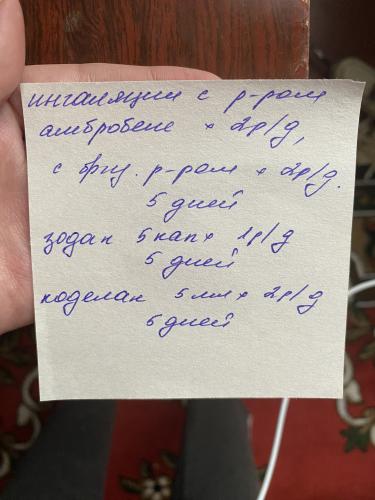 ингаляции с р-ром
амбробене × 2р/д,
с р-ром × 2р/д.
5 дней
зодан 5 кап × 1р/д
5 дней
коделак 5 мл × 2р/д
5 дней